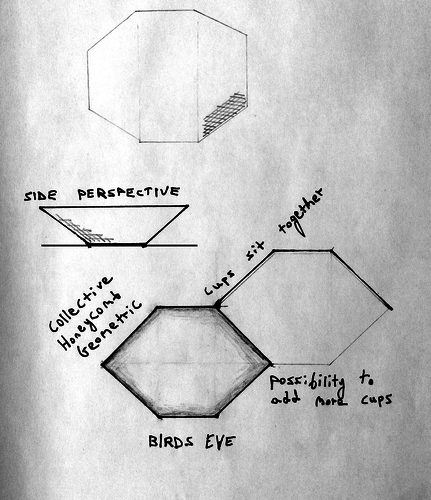 SIDE PERSPECTIVE
cups sit together
Collective
Honeycomb
Geometric
possibility to
add more cups
BIRDS EVE